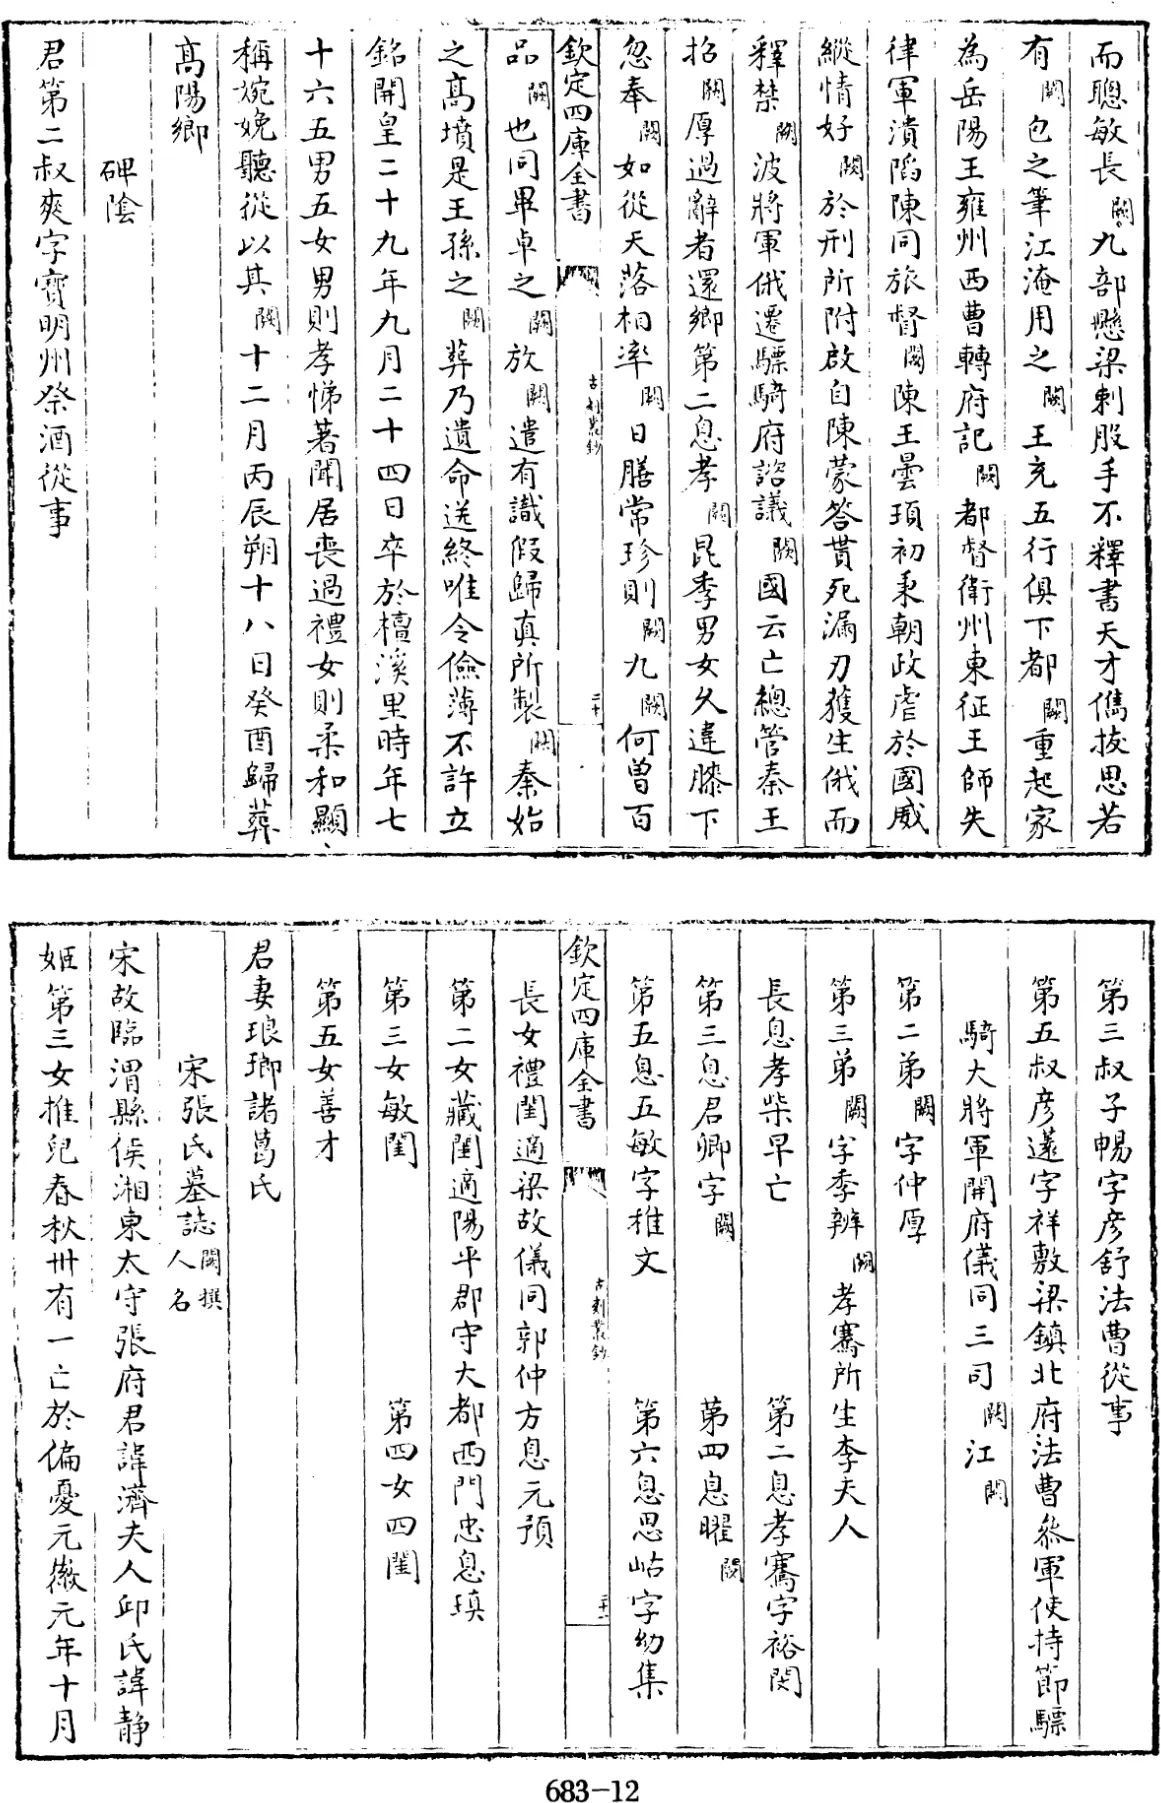 而聰敏長闕九部懸梁刺股手不釋書天才儁拔思若
有闕包之筆江淹用之闕王充五行俱下都闕重起家
為岳陽王雍州西曹轉府記闕都督衛州東征王師失
律軍潰陷陳同旅督闕陳王曇頊初秉朝政虐於國威
縱情好闕於刑所附啟自陳蒙答貰死漏刃獲生俄而
釋禁闕波將軍俄遷驃騎府諮議闕國云亡總管秦王
招闕厚過辭者還鄉第二息孝闕昆季男女久違膝下
忽奉闕如從天落相率闕日膳常珍則闕九闕何曾百
欽定四庫全書
古刻叢鈔
二十
品闕也同畢卓之闕放闕遣有識假歸真所製闕秦始
之高墳是王孫之闕葬乃遺命送終唯令儉薄不許立
銘開皇二十九年九月二十四日卒於檀溪里時年七
十六五男五女男則孝悌著聞居喪過禮女則柔和顯
稱婉娩聽從以其闕十二月丙辰朔十八日癸酉歸葬
高陽鄉
碑陰
君第二叔爽字寶明州祭酒從事
第三叔子暢字彥舒法曹從事
第五叔彥邃字祥敷梁鎮北府法曹叅軍使持節驃
騎大將軍開府儀同三司闕江闕
第二弟闕字仲厚
第三弟闕字季辨闕孝騫所生李夫人
長息孝柴早亡 第二息孝騫字裕閔
第三息君卿字闕 第四息曜闕
第五息五敏字稚文 第六息思岵字幼集
欽定四庫全書
古刻叢鈔
二十一
長女禮閨適梁故儀同郭仲方息元預
第二女藏閨適陽平郡守大都西門忠息瑱
第三女敏閨 第四女四閨
第五女善才
君妻琅琊諸葛氏
宋張氏墓誌闕撰人名
宋故臨渭縣侯湘東太守張府君諱濟夫人邱氏諱靜
姬第三女推兒春秋卅有一亡於偏憂元徽元年十月
683-12